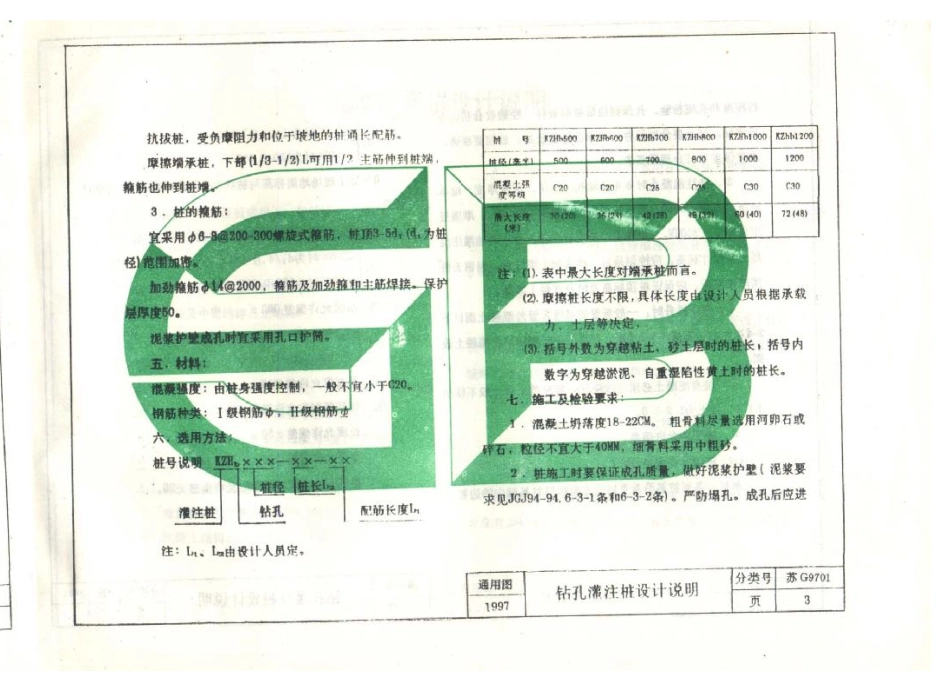 抗拔桩，受负摩阻力和位于坡地的桩通长配筋。
摩擦端承桩，下部(1/3-1/2)L可用1/2 主筋伸到桩端，
箍筋也伸到桩端。
3．桩的箍筋：
宜采用φ6-8@200-300螺旋式箍筋，桩顶3-5d₁(d₁为桩
径)范围加密。
加劲箍筋φ14@2000，箍筋及加劲箍和主筋焊接。保护
层厚度50。
泥浆护壁成孔时宜采用孔口护筒。
五．材料：
混凝强度：由桩身强度控制，一般不宜小于C20。
钢筋种类：Ⅰ级钢筋φ，Ⅱ级钢筋
六．选用方法：
桩号说明 KZHb×××—××—××
桩径 桩长
灌注桩 钻孔 配筋长度
注： 由设计人员定。
桩 号 KZHb500 KZHb600 KZHb700 KZHb800 KZHb1000 KZHb1200
桩径(毫米) 500 600 700 800 1000 1200
混凝土强度等级 C20 C20 C25 C25 C30 C30
最大长度(米) 30(20) 36(24) 42(28) 48(32) 60(40) 72(48)
注：(1). 表中最大长度对端承桩而言。
(2). 摩擦桩长度不限，具体长度由设计人员根据承载
力、土层等决定．
(3). 括号外数为穿越粘土、砂土层时的桩长，括号内
数字为穿越淤泥、自重湿陷性黄土时的桩长。
七．施工及检验要求：
1．混凝土坍落度18-22CM。 粗骨料尽量选用河卵石或
碎石，粒径不宜大于40MM，细骨料采用中粗砂。
2．桩施工时要保证成孔质量，做好泥浆护壁(泥浆要
求见JGJ94-94.6-3-1条和6-3-2条)。严防塌孔。成孔后应进
通用图 1997 钻孔灌注桩设计说明 分类号 苏G9701
页 3